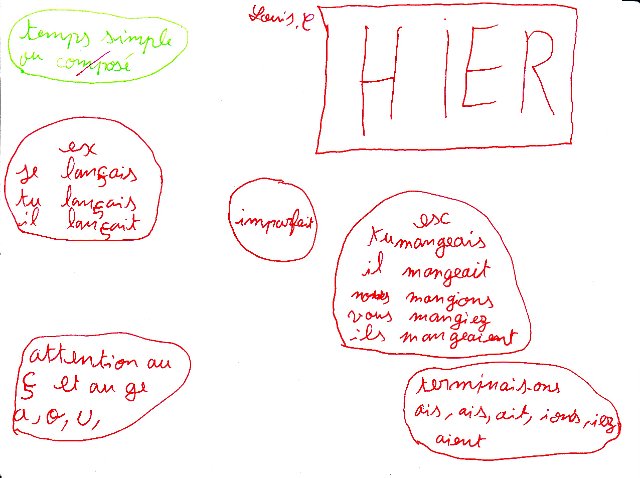 temps simple
ou composé
Louis. C
HIER
ex
je lançais
tu lançais
il lançait
imparfait
esc
tu mangeais
il mangeait
nous mangions
vous mangiez
ils mangeaient
attention au
ç et au ge
a, o, u,
terminaisons
ais, ais, ait, ions, iez
aient